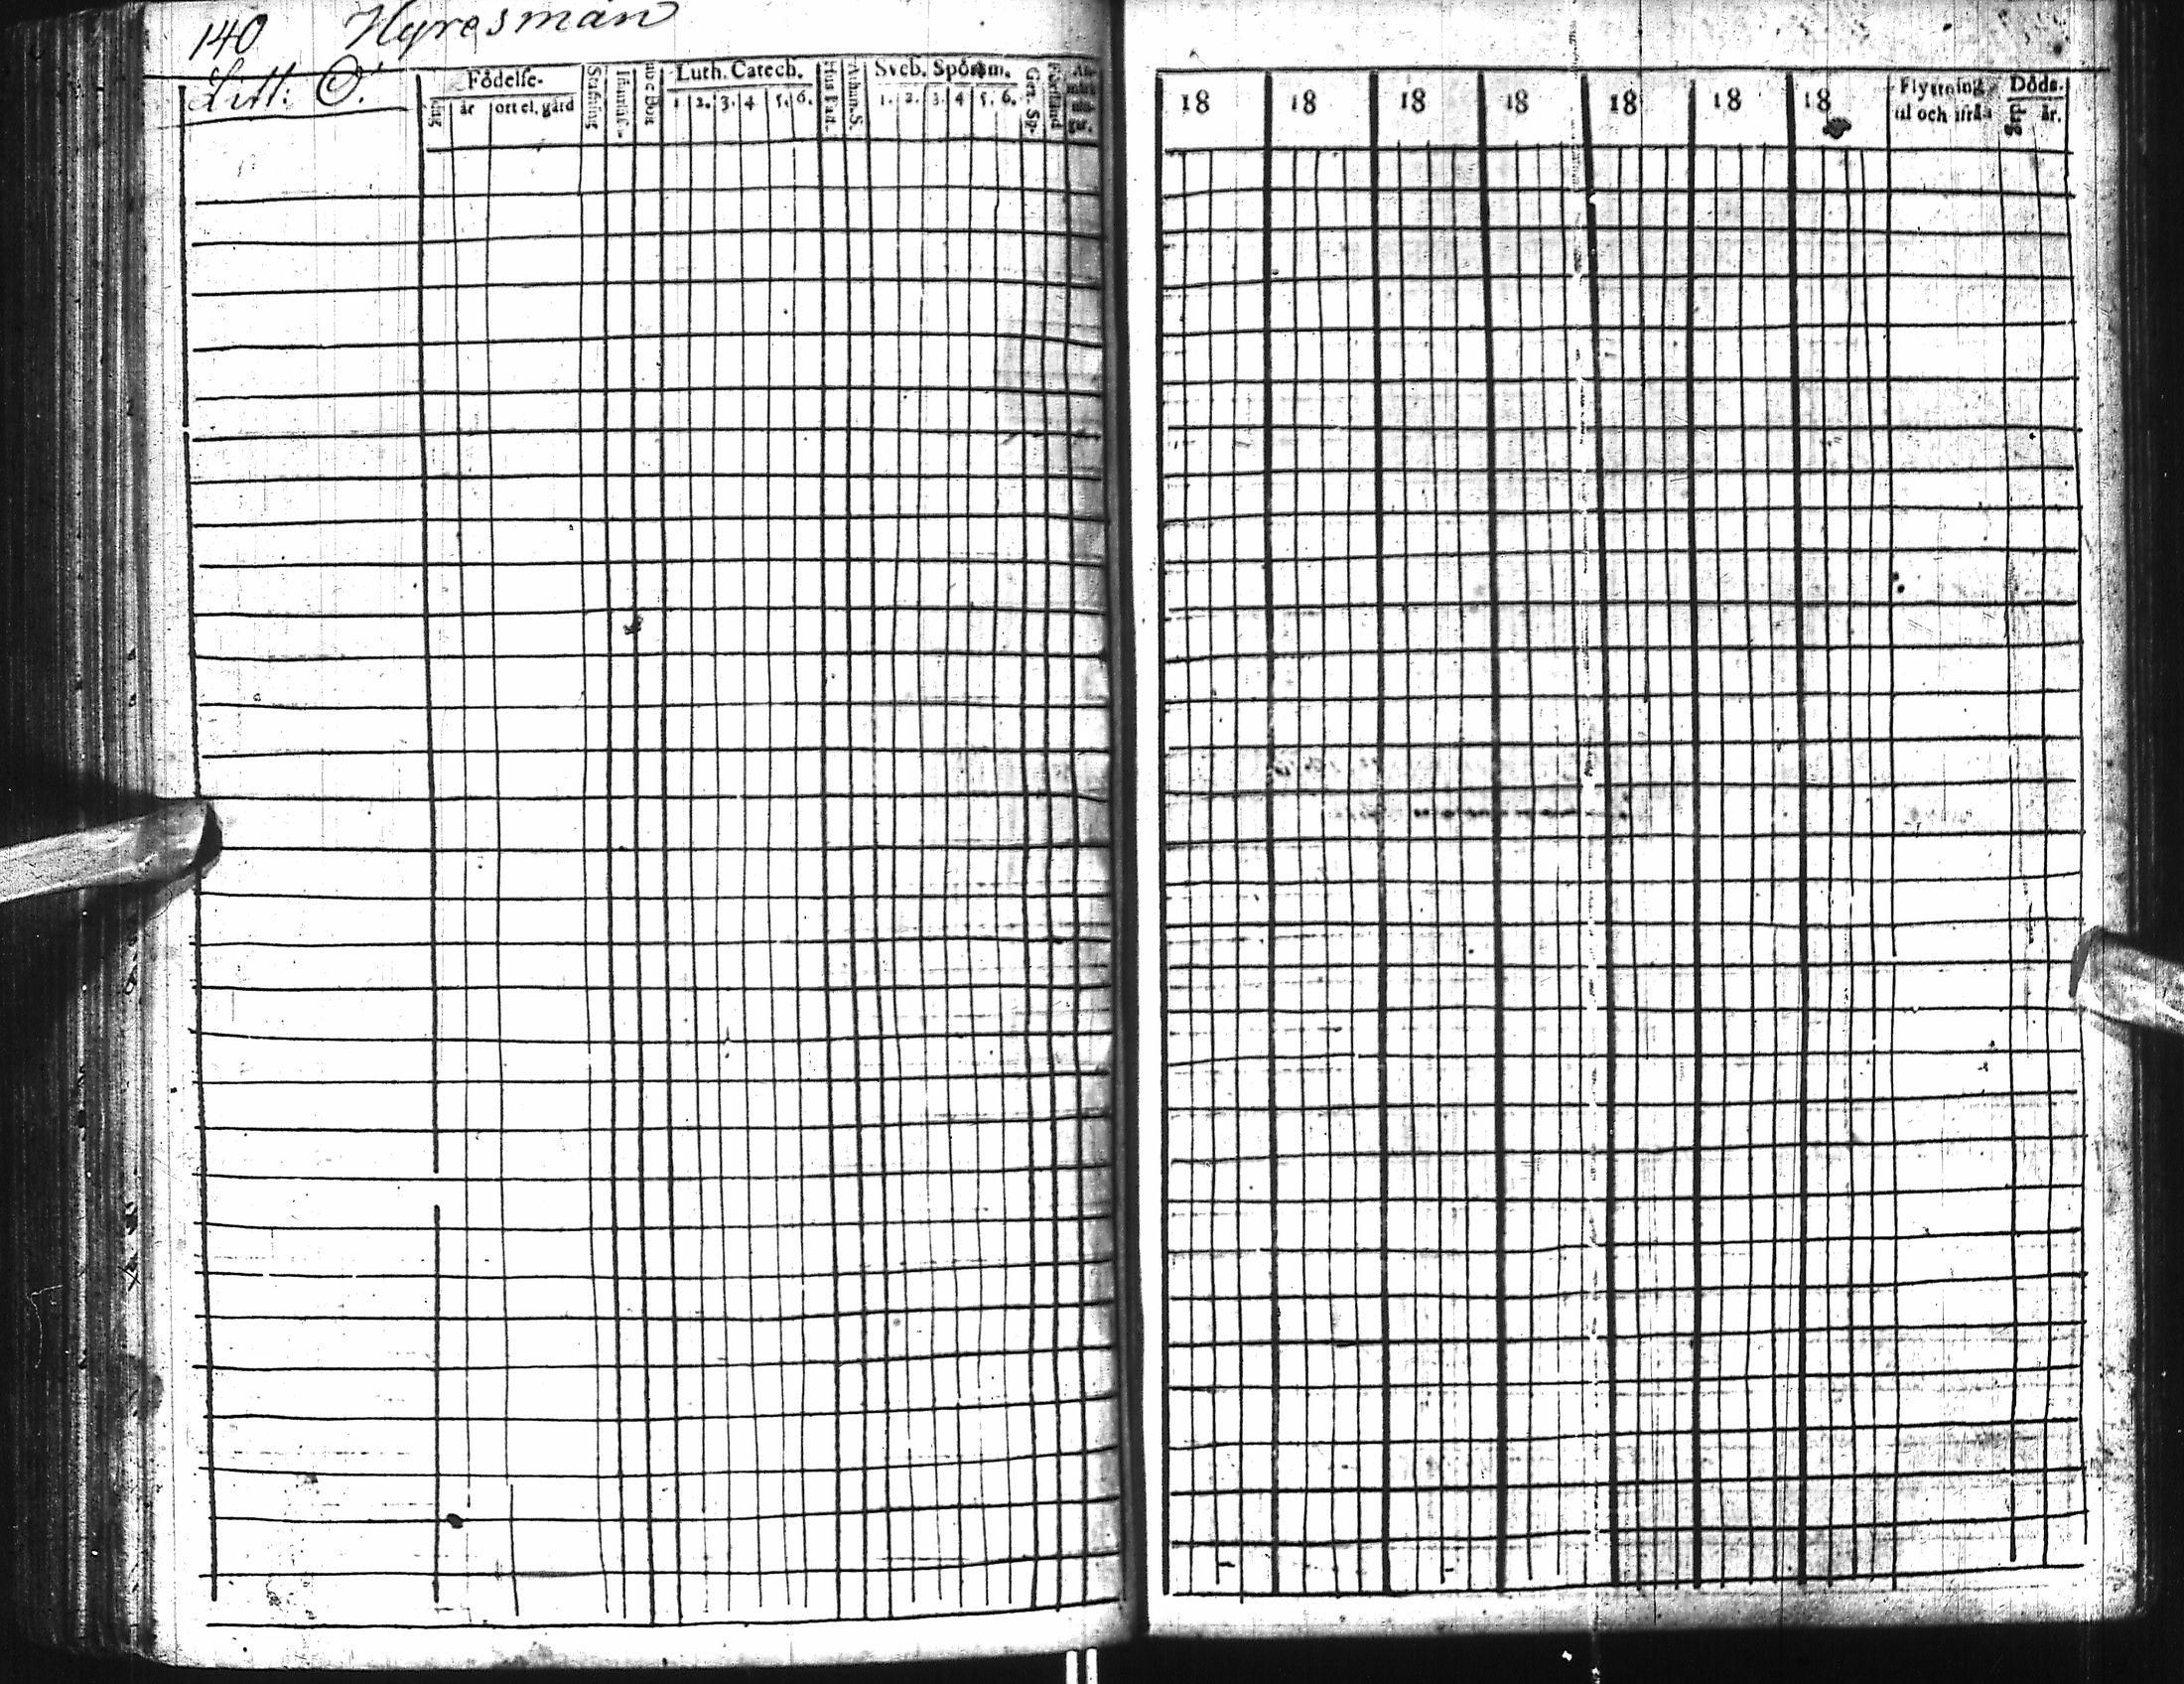 140 Hyresmän
Litt: O.
Födelse-
dag år ort el. gård
Luth. Catech.
1 2. 3. 4 5. 6.
Hus Tafl.
Athan. S.
Sveb. Spörsm.
1. 2. 3. 4 5. 6.
Gez. Sp.
Förstånd
18 18 18 18 18 18 18
Flyttning
til och ifrån
Döds-
dag år.